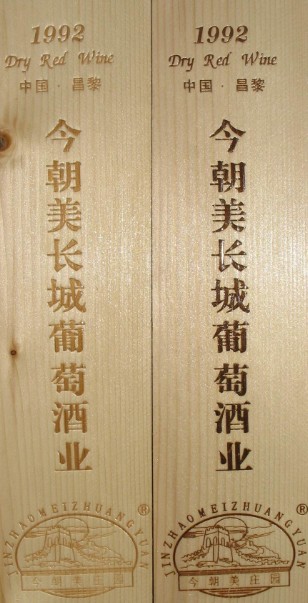 1992
Dry Red Wine
中国·昌黎
今朝美长城葡萄酒业
JINZHAOMEIZHUANGYUAN
®
今朝美庄园
1992
Dry Red Wine
中国·昌黎
今朝美长城葡萄酒业
JINZHAOMEIZHUANGYUAN
®
今朝美庄园